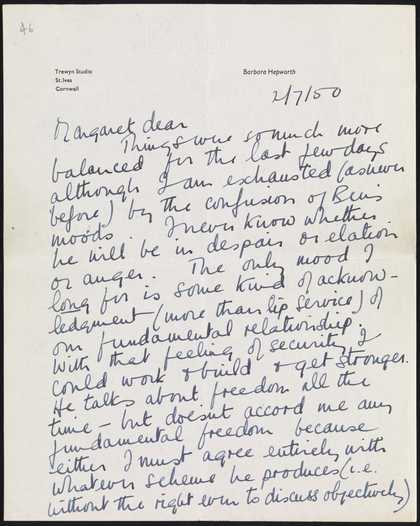 46
Trewyn Studio
St. Ives
Cornwall
Barbara Hepworth
2/7/50
Margaret dear
Things were so much more
balanced for the last few days
although I am exhausted (as never
before) by the confusion of Ben's
moods. I never know whether
he will be in despair or elation
or anger. The only mood I
long for is some kind of acknow-
ledgment (more than lip service) of
our fundamental relationship.
With that feeling of security I
could work & build & get stronger.
He talks about freedom all the
time – but doesn't accord me any
fundamental freedom because
either I must agree entirely with
whatever scheme he produces (i.e.
without the right even to discuss objectively)